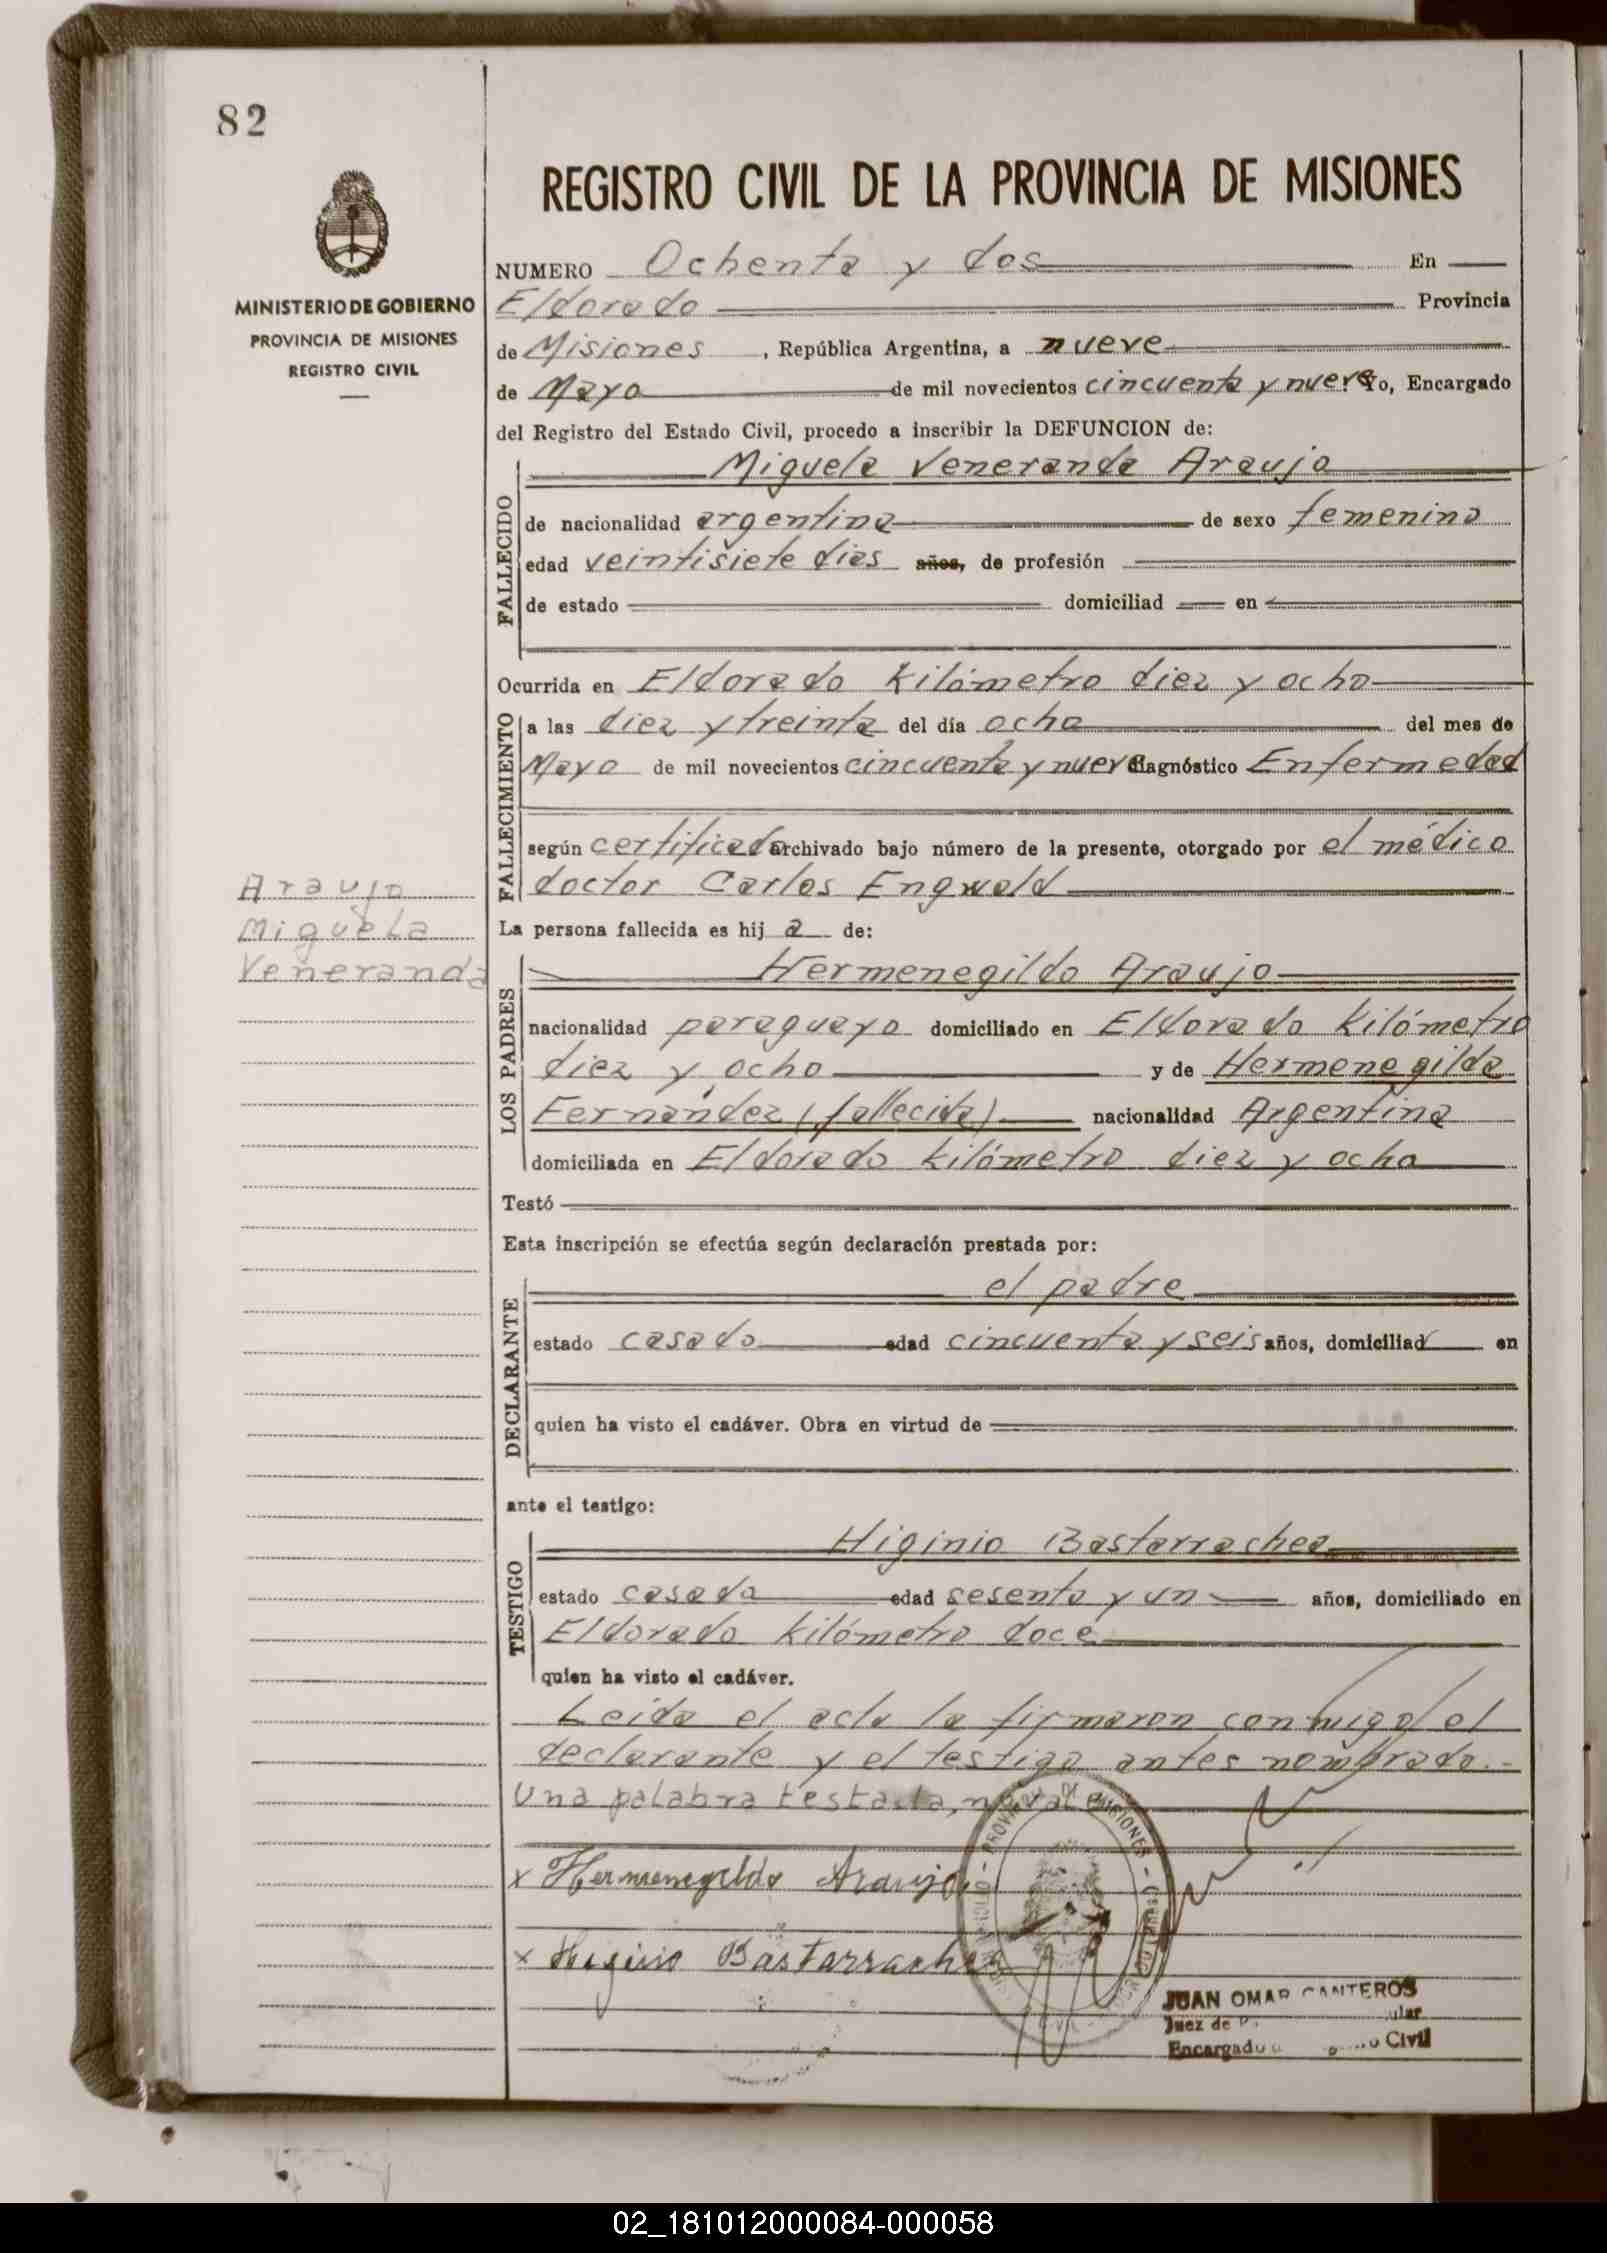 82
REGISTRO CIVIL DE LA PROVINCIA DE MISIONES
MINISTERIO DE GOBIERNO
PROVINCIA DE MISIONES
REGISTRO CIVIL
NUMERO Ochenta y dos En
Eldorado Provincia
de Misiones, República Argentina, a nueve
de Mayo de mil novecientos cincuenta y nueve Yo, Encargado
del Registro del Estado Civil, procedo a inscribir la DEFUNCION de:
FALLECIDO
Miguela Veneranda Araujo
de nacionalidad argentina de sexo femenino
edad veintisiete dias años, de profesión
de estado domiciliad en
Ocurrida en Eldorado kilómetro diez y ocho
FALLECIMIENTO
a las diez y treinta del día ocho del mes de
Mayo de mil novecientos cincuenta y nueve diagnóstico Enfermedad
según certificado archivado bajo número de la presente, otorgado por el médico
doctor Carlos Engwald
Araujo
Miguela
Veneranda
La persona fallecida es hij a de:
LOS PADRES
Hermenegildo Araujo
nacionalidad paraguayo domiciliado en Eldorado kilómetro
diez y ocho y de Hermenegilda
Fernández (fallecida) nacionalidad Argentina
domiciliada en Eldorado kilómetro diez y ocho
Testó
Esta inscripción se efectúa según declaración prestada por:
DECLARANTE
el padre
estado casado edad cincuenta y seis años, domiciliad en
quien ha visto el cadáver. Obra en virtud de
ante el testigo:
TESTIGO
Higinio Bastarrachea
estado casado edad sesenta y un años, domiciliado en
Eldorado kilómetro doce
quien ha visto el cadáver.
Leida el acta la firmaron conmigo el
declarante y el testigo antes nombrado.-
Una palabra testada, no vale
x Hermenegildo Araujo
x Higinio Bastarrachea
PROVINCIA DE MISIONES
JUAN OMAR CANTEROS
Juez de
Encargado Civil
02_181012000084-000058